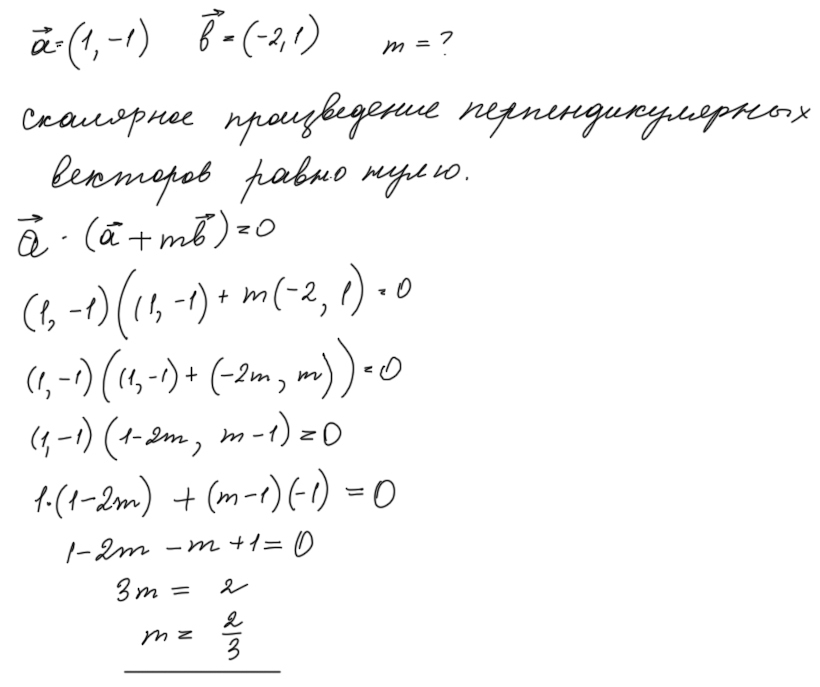 a⃗=(1,-1) b⃗=(-2,1) m=?
скалярное произведение перпендикулярных
векторов равно нулю.
a⃗·(a⃗+mb⃗)=0
(1,-1)((1,-1)+m(-2,1)=0
(1,-1)((1,-1)+(-2m,m))=0
(1,-1)(1-2m, m-1)=0
1·(1-2m)+(m-1)(-1)=0
1-2m-m+1=0
3m=2
m=2/3